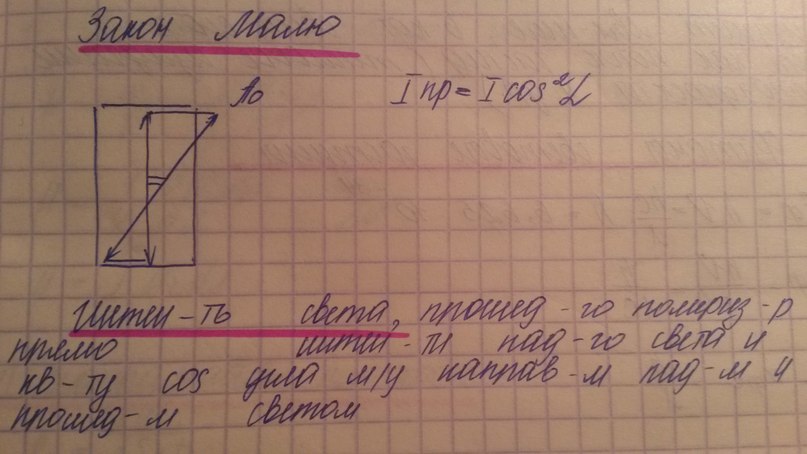 Закон Малю
A₀
I пр = I cos²α
Интен-ть света, прошед-го поляриз-р
прямо интен-ти пад-го света и
кв-ту cos угла м/у направ-м пад-м и
прошед-м светом